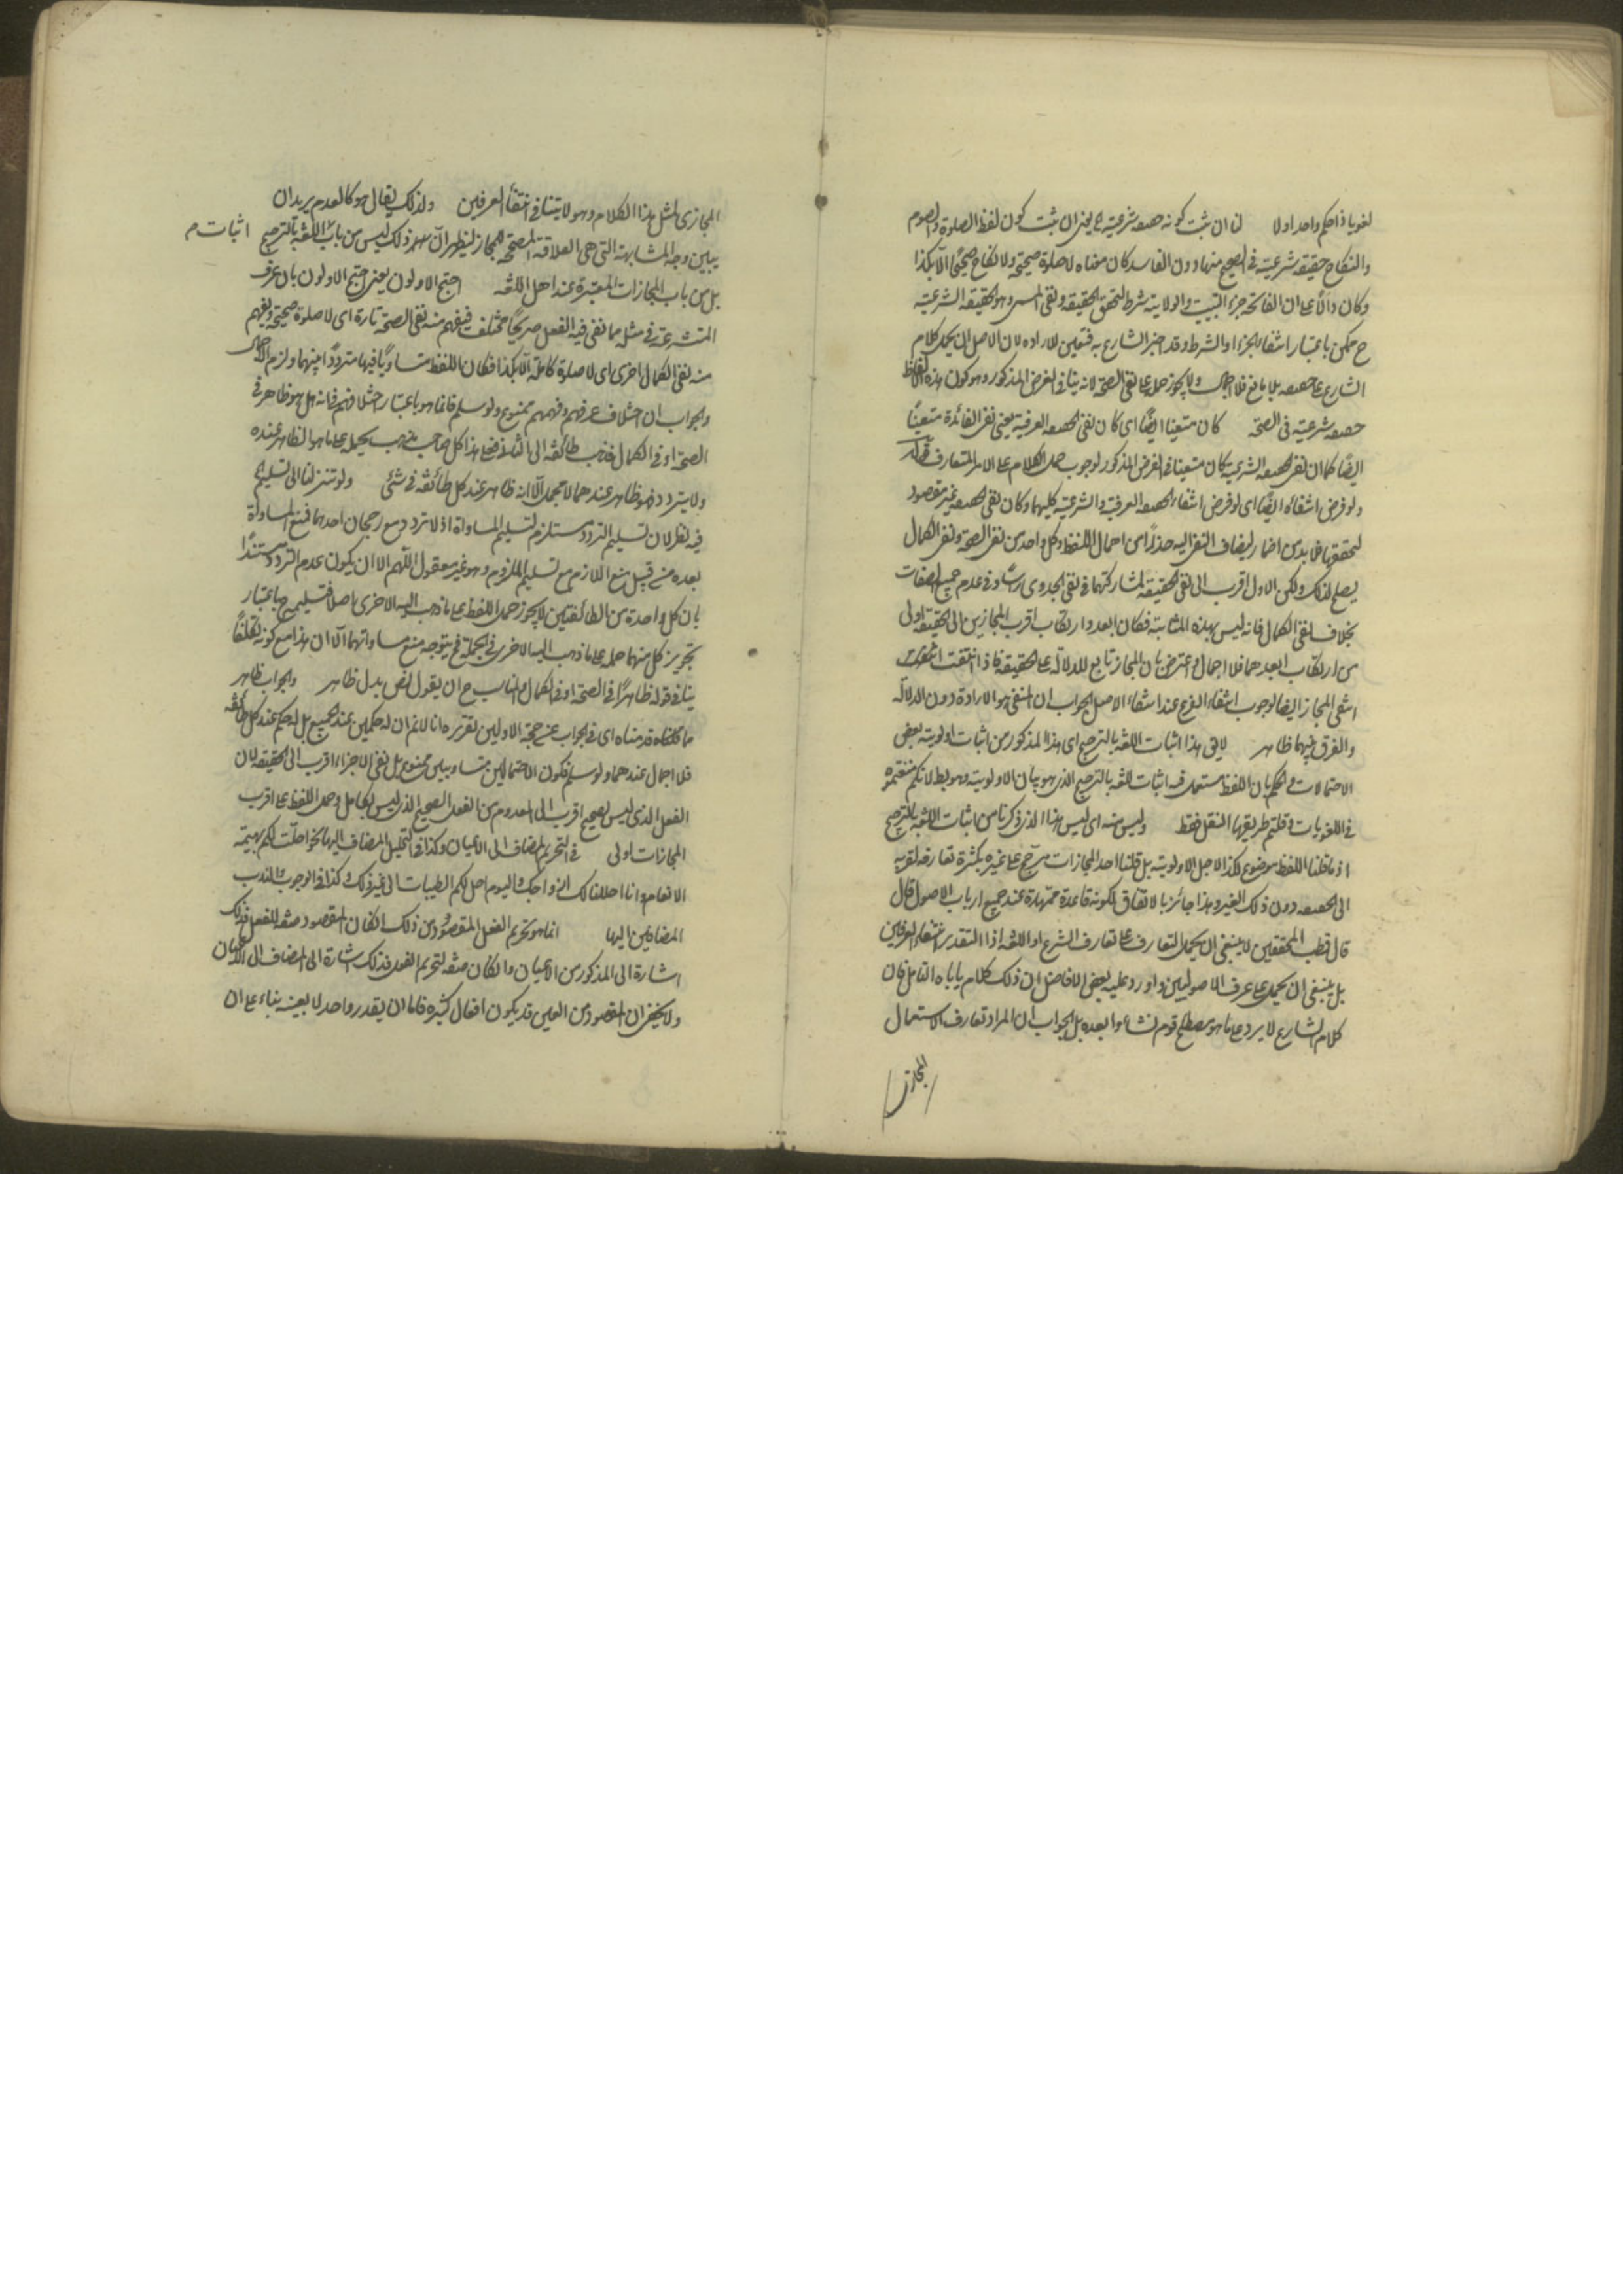 لغويا ذا حكم واحد اولا لنا ان ثبت كونه حصصه شرعية يعنى ان ثبت كون لفظ الصلوة والصوم
والنكاح حقيقة شرعية فى الصحيح منها دون الفاسد كان معناه لا صلوة صحيحة ولا نكاح صحيحا الا بكذا
وكان دالا على ان الفاتحة جزء والولاية شرط لتحقق الحقيقة ونفى المسمى وهو الحقيقة الشرعية
ح ممكن باعتبار انتفاء الجزء او الشرط وقد اخبر الشارع به فتعين للاراده لان الاصل ان يحمل كلام
الشارع على حصصه بلا مانع فلا اجمال ولا يجوز حمله على نفى الصحة لانه ينافى الفرض المذكور وهو كون هذه الالفاظ
حصصه شرعية فى الصحة كان متعينا ايضا اى كان نفى الحصصه العرفية يعنى نفى الفائدة متعينا
ايضا كما ان نفى الحصصه الشرعية كان متعينا فى الفرض المذكور لوجوب حمل الكلام على الامر المتعارف
ولو فرض انتفاه ايضا اى لو فرض انتفاء الحصصه العرفية والشرعية كليهما وكان نفى الحصصه غير مقصود
لتحققها فلا بد من اضمار ليضاف النفى اليه حذرا من اهمال اللفظ وكل واحد من نفى الصحة ونفى الكمال
يصلح لذلك ولكن الاول اقرب الى نفى الحقيقة لمشاركتهما فى نفى الجدوى وفى عدم جميع الصفات
بخلاف نفى الكمال فانه ليس بهذه المثابة فكان ابعد وارتكاب اقرب المجازين الى الحقيقة اولى
من ارتكاب ابعدهما فلا اجمال واعترض بان المجاز تابع للدلالة على الحقيقة فاذا انتفت
انتفى المجاز ايضا لوجوب انتفاء الفرع عند انتفاء الاصل الجواب ان المنفى هو الارادة دون الدلالة
والفرق بينهما ظاهر لا يق هذا اثبات اللغة بالترجيح اى هذا المذكور من اثبات اولوية بعض
الاحتمالات والحكم بان اللفظ مستعمل فيه اثبات للغة بالترجيح الذى هو بيان الاولوية وهو بط لانكم
فى اللغويات وقلتم طريقها النقل فقط وليس منه اى ليس هذا الذى ذكرنا من اثبات اللغة بالترجيح
اذ ما قلنا اللفظ موضوع لكذا لاجل الاولوية بل قلنا احد المجازات يرجح على غيره بكثرة تعارفه لقربه
الى الحصصه دون ذلك الغير وهذا جائز بالاتفاق لكونه قاعدة ممهدة عند جميع ارباب الاصول قال
قال قطب المحققين لا ينبغى ان يحمل التعارف على تعارف الشرع او اللغة اذا التقدير انتفاء العرفين
بل ينبغى ان يحمل على عرف الاصوليين واورد عليه بعض الافاضل ان ذلك كلام ياباه التامل فان
كلام الشارع لا يرد على ما هو مصطلح قوم نشاءوا بعده بل الجواب ان المراد تعارف الاستعمال
المجازى
المجازى لمثل هذا الكلام وهو لا ينافى انتفاء العرفين ولذلك يقال هو كالعدم يريد ان
يبين وجه المشابهة التى هى العلاقة المصححة للمجاز ليظهر ان ذلك ليس من باب اللغة بالترجيح اثبات م
بل من باب المجازات المعتبرة عند اهل اللغة احتج الاولون يعنى احتج الاولون بان عرف
المتشرعة فى مثل ما نفى فيه الفعل صريحا مختلف فيفهم منه نفى الصحة تارة اى لا صلوة صحيحة ويفهم
منه نفى الكمال اخرى اى لا صلوة كاملة الا بكذا فكان اللفظ متساويا فيها مترددا بينهما ولزم الاجمال
والجواب ان اختلاف عرفهم وفهمهم ممنوع ولو سلم فانما هو باعتبار اختلافهم فى انه هل هو ظاهر فى
الصحة او فى الكمال فذهب طائفة الى فعلى هذا كل صاحب مذهب يحمله على ما هو الظاهر عنده
ولا يتردد فهو ظاهر عندهما لا مجمل الا انه ظاهر عند كل طائفة فى شئ ولو تنزلنا الى تسليم
فيه نظر لان تسليم التردد مستلزم لتسليم المساواة اذ لا تردد مع رجحان احدهما فمنع المساواة
بعده من قبيل منع اللازم مع تسليم الملزوم وهو غير معقول اللهم الا ان يكون عدم التردد مستندا
بان كل واحدة من الطائفتين لا يجوز حمل اللفظ على ما ذهب اليه الاخرى اصلا فتسليمه ح باعتبار
تجويز كل منهما حمله على ما ذهب اليه الاخرى فى الجملة فح يتوجه منع مساواتهما الا ان هذا مع كونه تكلفا
ينافى قوله ظاهرا فى الصحة او فى الكمال والمناسب ح ان يقول نص بدل ظاهر والجواب ظاهر
ما تكلفناه قدمناه اى فى الجواب عن حجة الاولين تقريره انا لا نم ان له حكمين عند الجميع بل له حكم عند كل طائفة
فلا اجمال عندهما ولو سلم فكون الاحتمالين متساويين ممنوع بل نفى الاجزاء اقرب الى الحقيقة لان
الفعل الذى ليس بصحيح اقرب الى المعدوم من الفعل الصحيح الذى ليس بكامل وحمل اللفظ على اقرب
المجازات اولى فى التحريم المضاف الى الاعيان وكذا فى التحليل المضاف اليها نحو احلت لكم بهيمة
الانعام وانا احللنا لك ازواجك واليوم احل لكم الطيبات الى غير ذلك وكذا فى الوجوب والندب
المضافين اليها انما هو تحريم الفعل المقصود من ذلك ان كان المقصود صفة للفعل فذلك
اشارة الى المذكور من الاعيان وان كان صفة لتحريم الفعل فذلك اشارة الى المضاف الى الاعيان
ولا يخفى ان المقصود من العين قد يكون افعال كثيرة فاما ان يقدر واحد لا بعينه بناء على ان